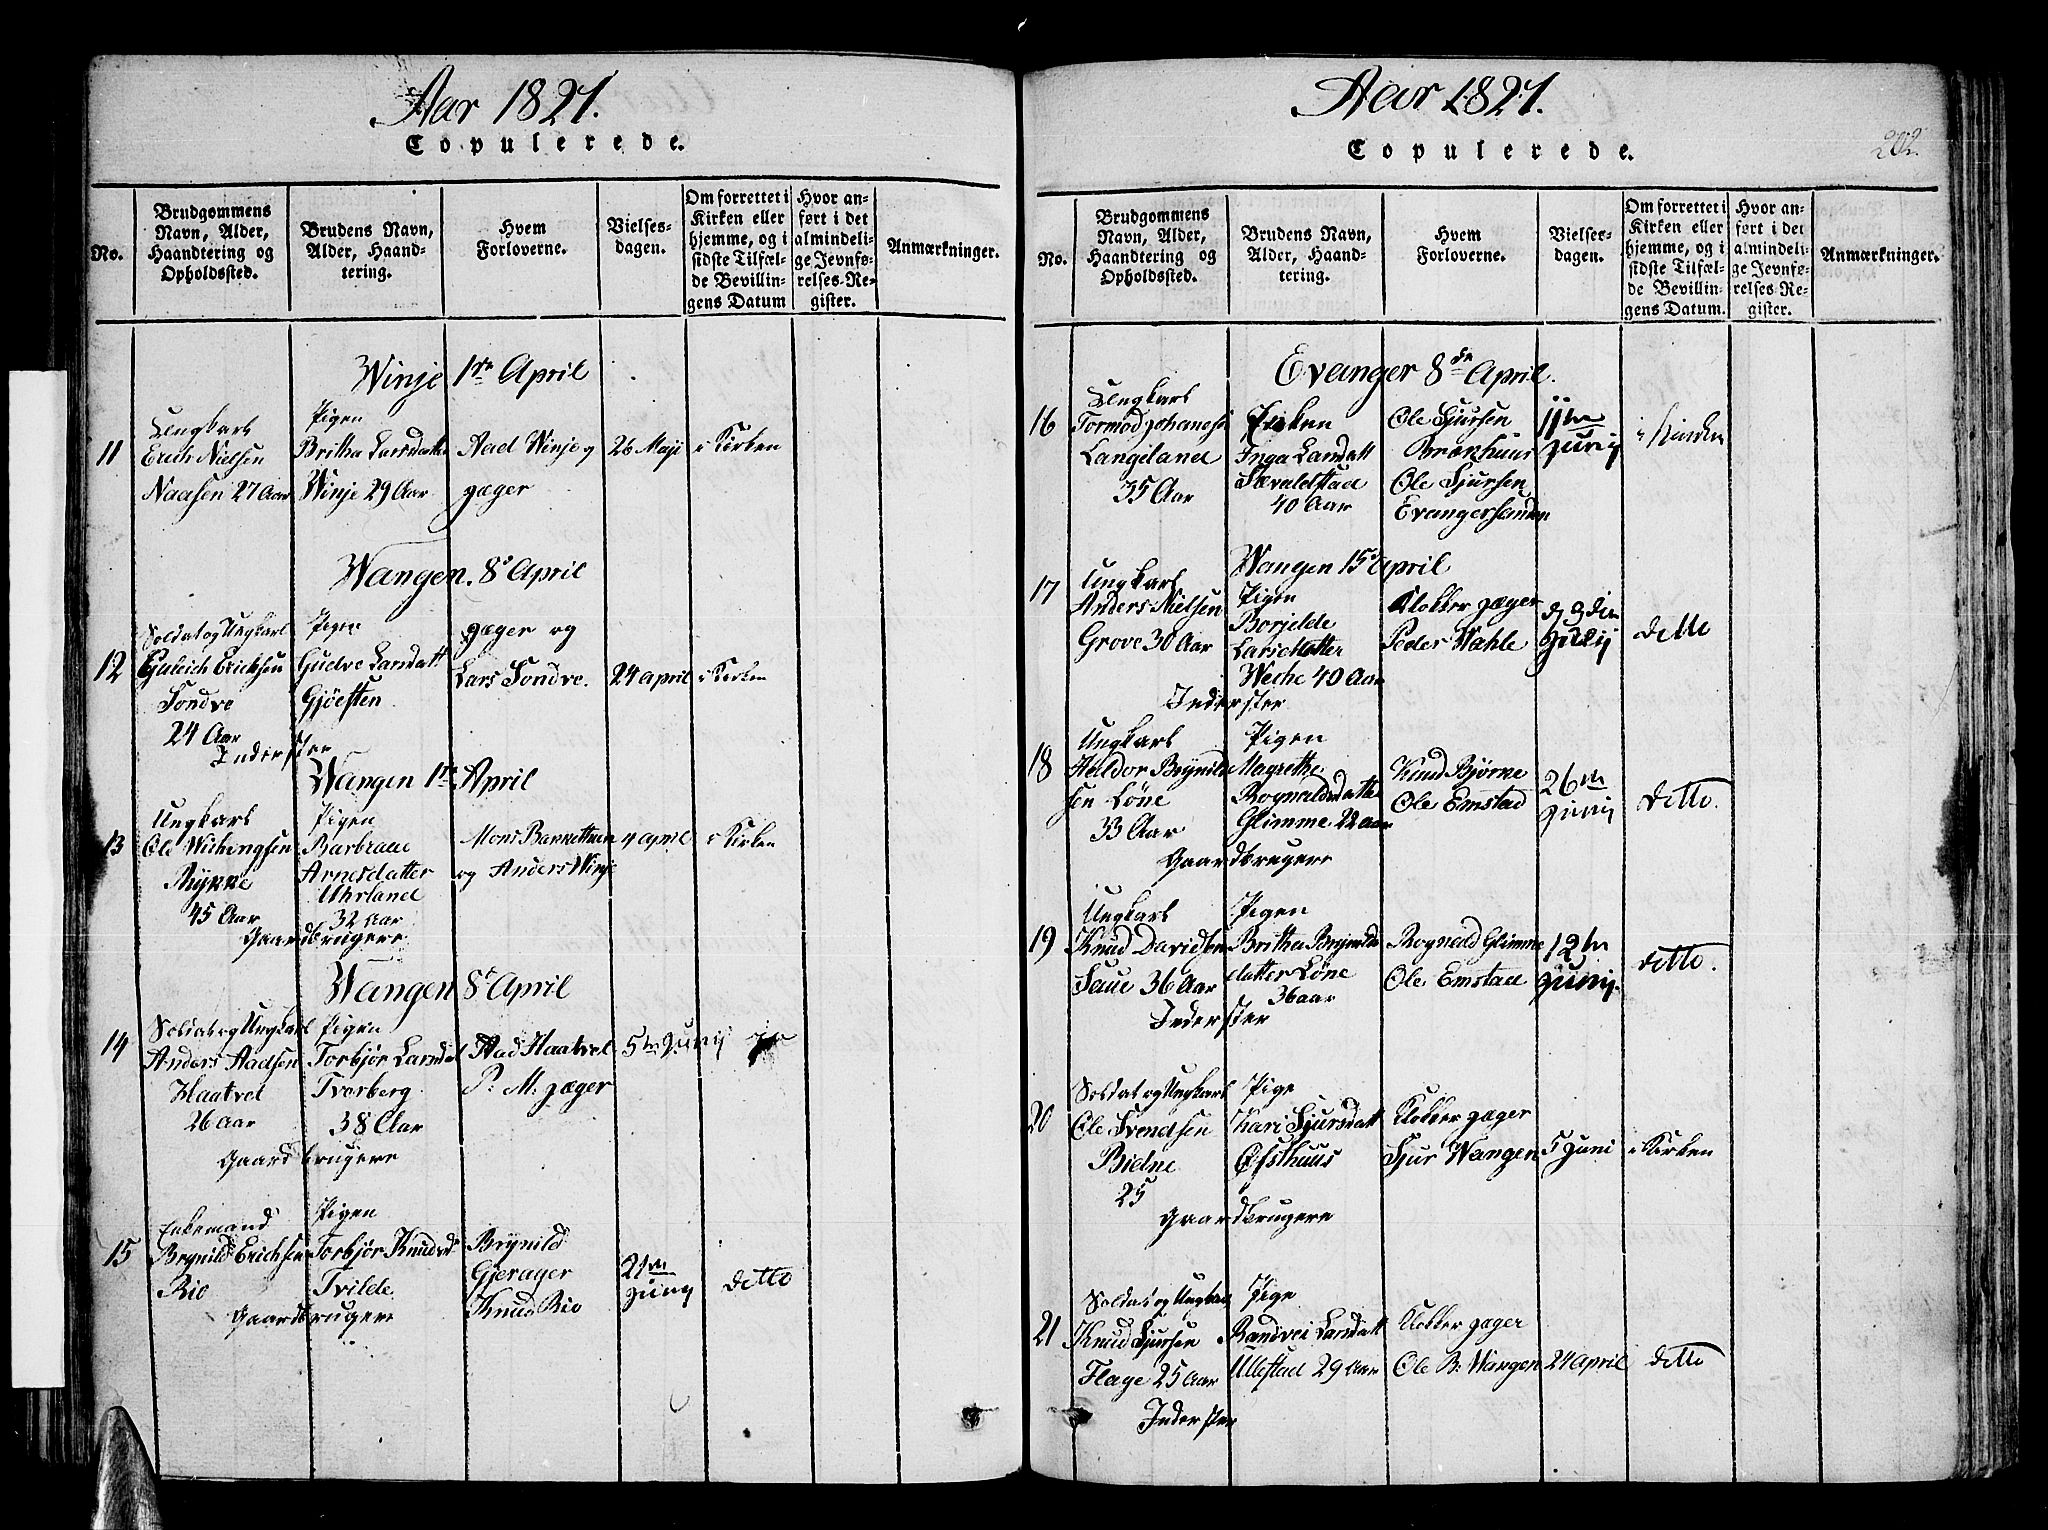 Aar 1821.
Copulerede.
No.
Brudgommens
Navn, Alder,
Haandtering og
Opholdssted.
Brudens Navn,
Alder, Haand-
tering.
Hvem
Forloverne.
Vielses-
dagen.
Om forrettet i
Kirken eller
hjemme, og i
sidste Tilfæl-
de Bevillin-
gens Datum
Hvor an-
ført i det
almindeli-
ge Jevnfø-
relses-Re-
gister.
Anmærkninger.
Winje 1ste April
11
Ungkarl
Erich Nielsen
Naasen 27 Aar
Pigen
Britha Larsdatter
Winje 29 Aar
Aad Winje og
Jæger
26 Maji
i Kirken
Wangen. 8de April
12
Soldat og Ungkarl
Guleich Erichsen
Sondve
24 Aar
Pigen
Gudve Larsdatt
Gjøesten
Jæger og
Lars Sondve.
24 april
i Kirken
Inderster
Wangen 1ste April
13
Ungkarl
Ole Wichingsen
Rykke
45 Aar
Pigen
Barbraae
Arnesdatter
Uhrland
32 Aar
Mons
og Anders Winje
april
i Kirken
Gaardbrugere
Wangen 8de April
14
Soldat og Ungkarl
Anders Aadsen
Haatvet
26 Aar
Pigen
Torbjør Larsdat
Tvarberg
38 Aar
Aad Haatvet
P. M. Jæger
5te Junij
Gaardbrugere
15
Enkemand
Brynild Erichsen
Rio
Pigen
Torbjør Knudsd
Tvilde
Brynild
Gjerager
Knud Rio
21de
Junij
ditto
Gaardbrugere
Aar 1821.
Copulerede.
202.
No.
Brudgommens
Navn, Alder,
Haandtering og
Opholdssted.
Brudens Navn,
Alder, Haand-
tering.
Hvem
Forloverne.
Vielses-
dagen.
Om forrettet i
Kirken eller
hjemme, og i
sidste Tilfæl-
de Bevillin-
gens Datum.
Hvor an-
ført i det
almindeli-
ge Jevnfø-
relses Re-
gister.
Anmærkninger.
Evanger 8de April.
16
Ungkarl
Tormod Johannesen
Langeland
35 Aar
Enken
Inga Larsdatt
Sævaldstad
40 Aar
Ole Sjursen
Brækhuus
Ole Sjursen
Evangersanden
11te
Junij
i Kirken
Wangen 15d April
17
Ungkarl
Anders Nielsen
Grove 30 Aar
Pigen
Borjelde
Larsdatter
Weche 40 Aar
Klokker Jæger
Peder Wahle
Julij
ditto
Inderster
18
Ungkarl
Halldor Brynild
sen Løne
33 Aar
Pigen
Magrethe
Rognaldsdatter
Glimme 22 aar
Knud Bjørke
Ole Emstad
26de
Junij
ditto.
Gaardbrugere
19
Ungkarl
Knud Davidsen
Saue 36 Aar
Pigen
Britha Brynilds
datter Løne
36 aar
Rognald Glimme
Ole Emstad
12te
Junij.
ditto.
Inderster
20
Soldat og Ungkarl
Ole Svendsen
Bidne
25
Pige
Kari Sjursdatt
Øfsthuus
Klokker Jæger
Sjur Wangen
5 Juni
i Kirken
Gaardbrugere
21
Soldat og Ungkarl
Knud Sjursen
Flage 25 Aar
Pige
Randvei Larsdatt
Ullestad 29 Aar
Klokker Jæger
Ole B. Wangen
24 April
ditto
Inderster